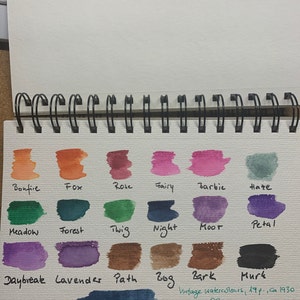 Bonfire Fox Rose Fairy Barbie Hate
Meadow Forest Twig Night Moor Petal
Daybreak Lavender Path Bog Bark Murk
Vintage watercolours, 14p, ca 1930